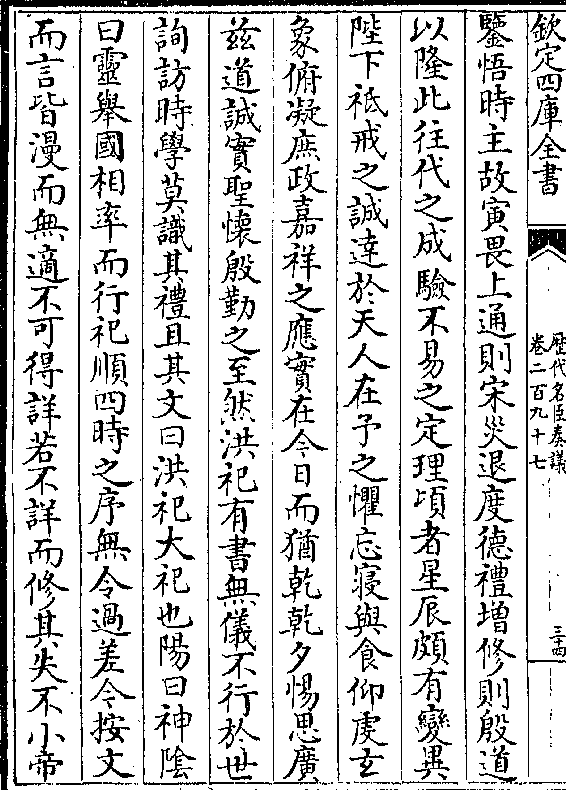 欽定四庫全書
歷代名臣奏議
卷二百九十七
三十四
鑒悟時主故寅畏上通則宋災退度德禮增修則殷道
以隆此往代之成驗不易之定理頃者星辰頗有變異
陛下祗戒之誠達於天人在予之懼忘寢與食仰虔玄
象俯凝庶政嘉祥之應實在今日而猶乾乾夕惕思廣
兹道誠實聖懐殷勤之至然洪祀有書無儀不行於世
詢訪時學莫識其禮且其文曰洪祀大祀也陽曰神陰
曰靈舉國相率而行祀順四時之序無令過差今按文
而言皆漫而無適不可得詳若不詳而修其失不小帝